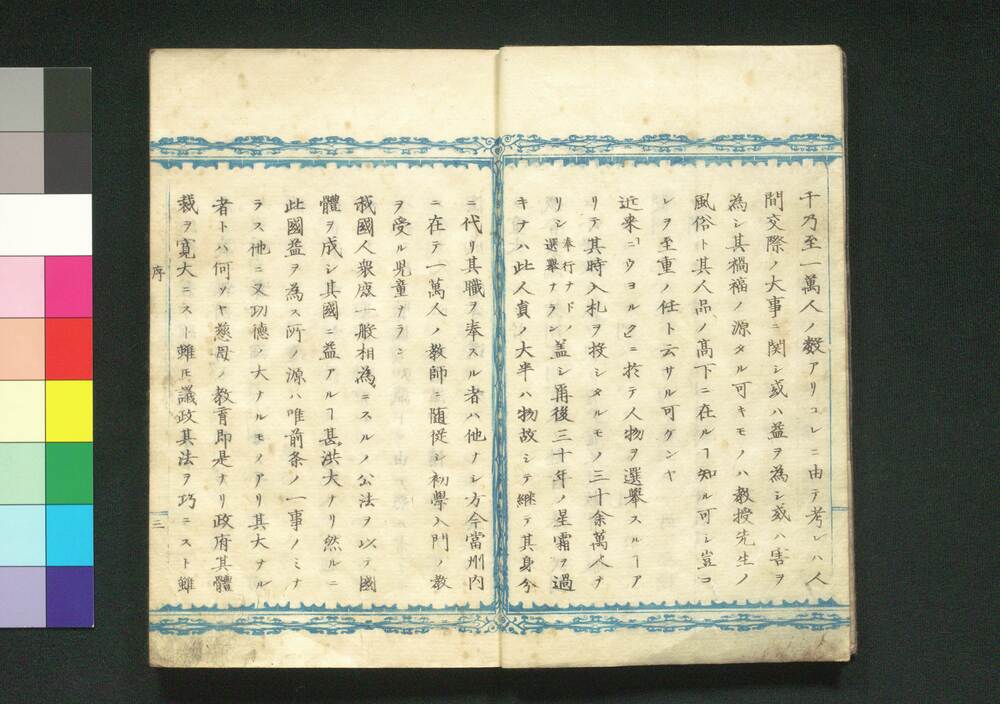 千乃至一萬人ノ數アリコレニ由テ考レハ人
間交際ノ大事ニ関シ或ハ益ヲ為シ或ハ害ヲ
為シ其禍福ノ源タル可キモノハ教授先生ノ
風俗ト其人品ノ髙下ニ在ルヿ知ル可シ豈コ
レヲ至重ノ任ト云サル可ケンヤ
近来ニウヨルクニ於テ人物ヲ選舉スルヿア
リテ其時入札ヲ投シタルモノ三十余萬人ナ
リシ奉行ナドノ選舉ナラン盖シ爾後三十年ノ星霜ヲ過
キナハ此人員ノ大半ハ物故シテ継テ其身分
ニ代リ其職ヲ奉スル者ハ他ナシ方今當州内
ニ在テ一萬人ノ教師ニ随從シ初學入門ノ教
ヲ受ル児童ナラン
我國人衆庶一般相為ニスルノ公法ヲ以テ國
體ヲ成シ其國ニ益アルヿ甚洪大ナリ然ルニ
此國益ヲ為ス所ノ源ハ唯前条ノ一事ノミナ
ラス他ニ又功徳ノ大ナルモノアリ其大ナル
者トハ何ソヤ慈母ノ教育即是ナリ政府其體
裁ヲ寛大ニスト雖㽗議政其法ヲ巧ニスト雖
序
三